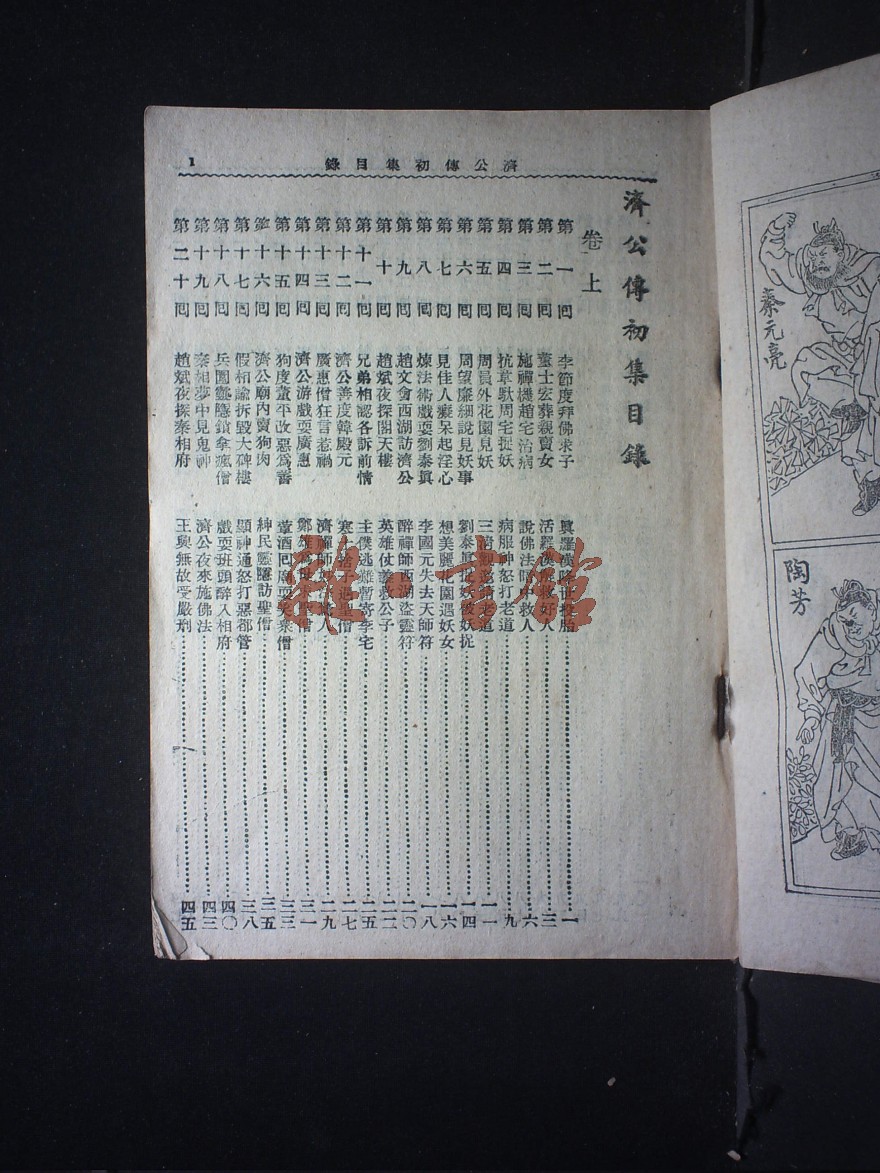 濟公傳初集目錄
1
濟公傳初集目錄
卷上
第一回 李節度拜佛求子 真羅漢降世投胎 一
第二回 董士宏葬親賣女 活羅漢 救好人 三
第三回 施禪機趙宅治病 說佛法暗中救人 六
第四回 抗草馱周宅捉妖 病服神怒打老道 九
第五回 周員外花園見妖 三清觀邀請老道 一一
第六回 周望廉細說見妖事 劉泰真捉妖被妖捉 一四
第七回 見佳人癡呆起淫心 想美麗花園遇妖女 一六
第八回 煉法術戲耍劉泰真 李國元失去天師符 一八
第九回 趙文會西湖訪濟公 醉禪師西湖盜靈符 二〇
第十回 趙斌夜探閣天樓 英雄仗義救公子 二二
第十一回 兄弟相認各訴前情 主僕逃難暫寄李宅 二五
第十二回 濟公善度韓殿元 寒士捨子遇聖僧 二七
第十三回 廣惠僧狂言惹禍 濟禪師妙 驚人 二九
第十四回 濟公游戲耍廣惠 鄭雄為母求聖僧 三一
第十五回 狗度董平改惡為善 葷酒回廟耍笑衆僧 三三
第十六回 濟公廟內賣狗肉 紳民靈隱訪聖僧 三五
第十七回 假相諭拆毀大碑樓 顯神通怒打惡都管 三八
第十八回 兵圍靈隱鎖拿瘋僧 戲耍班頭醉入相府 四〇
第十九回 秦相夢中見鬼神 濟公夜來施佛法 四三
第二十回 趙斌夜探秦相府 王興無故受嚴刑 四五
雜書館
秦元亮
陶芳